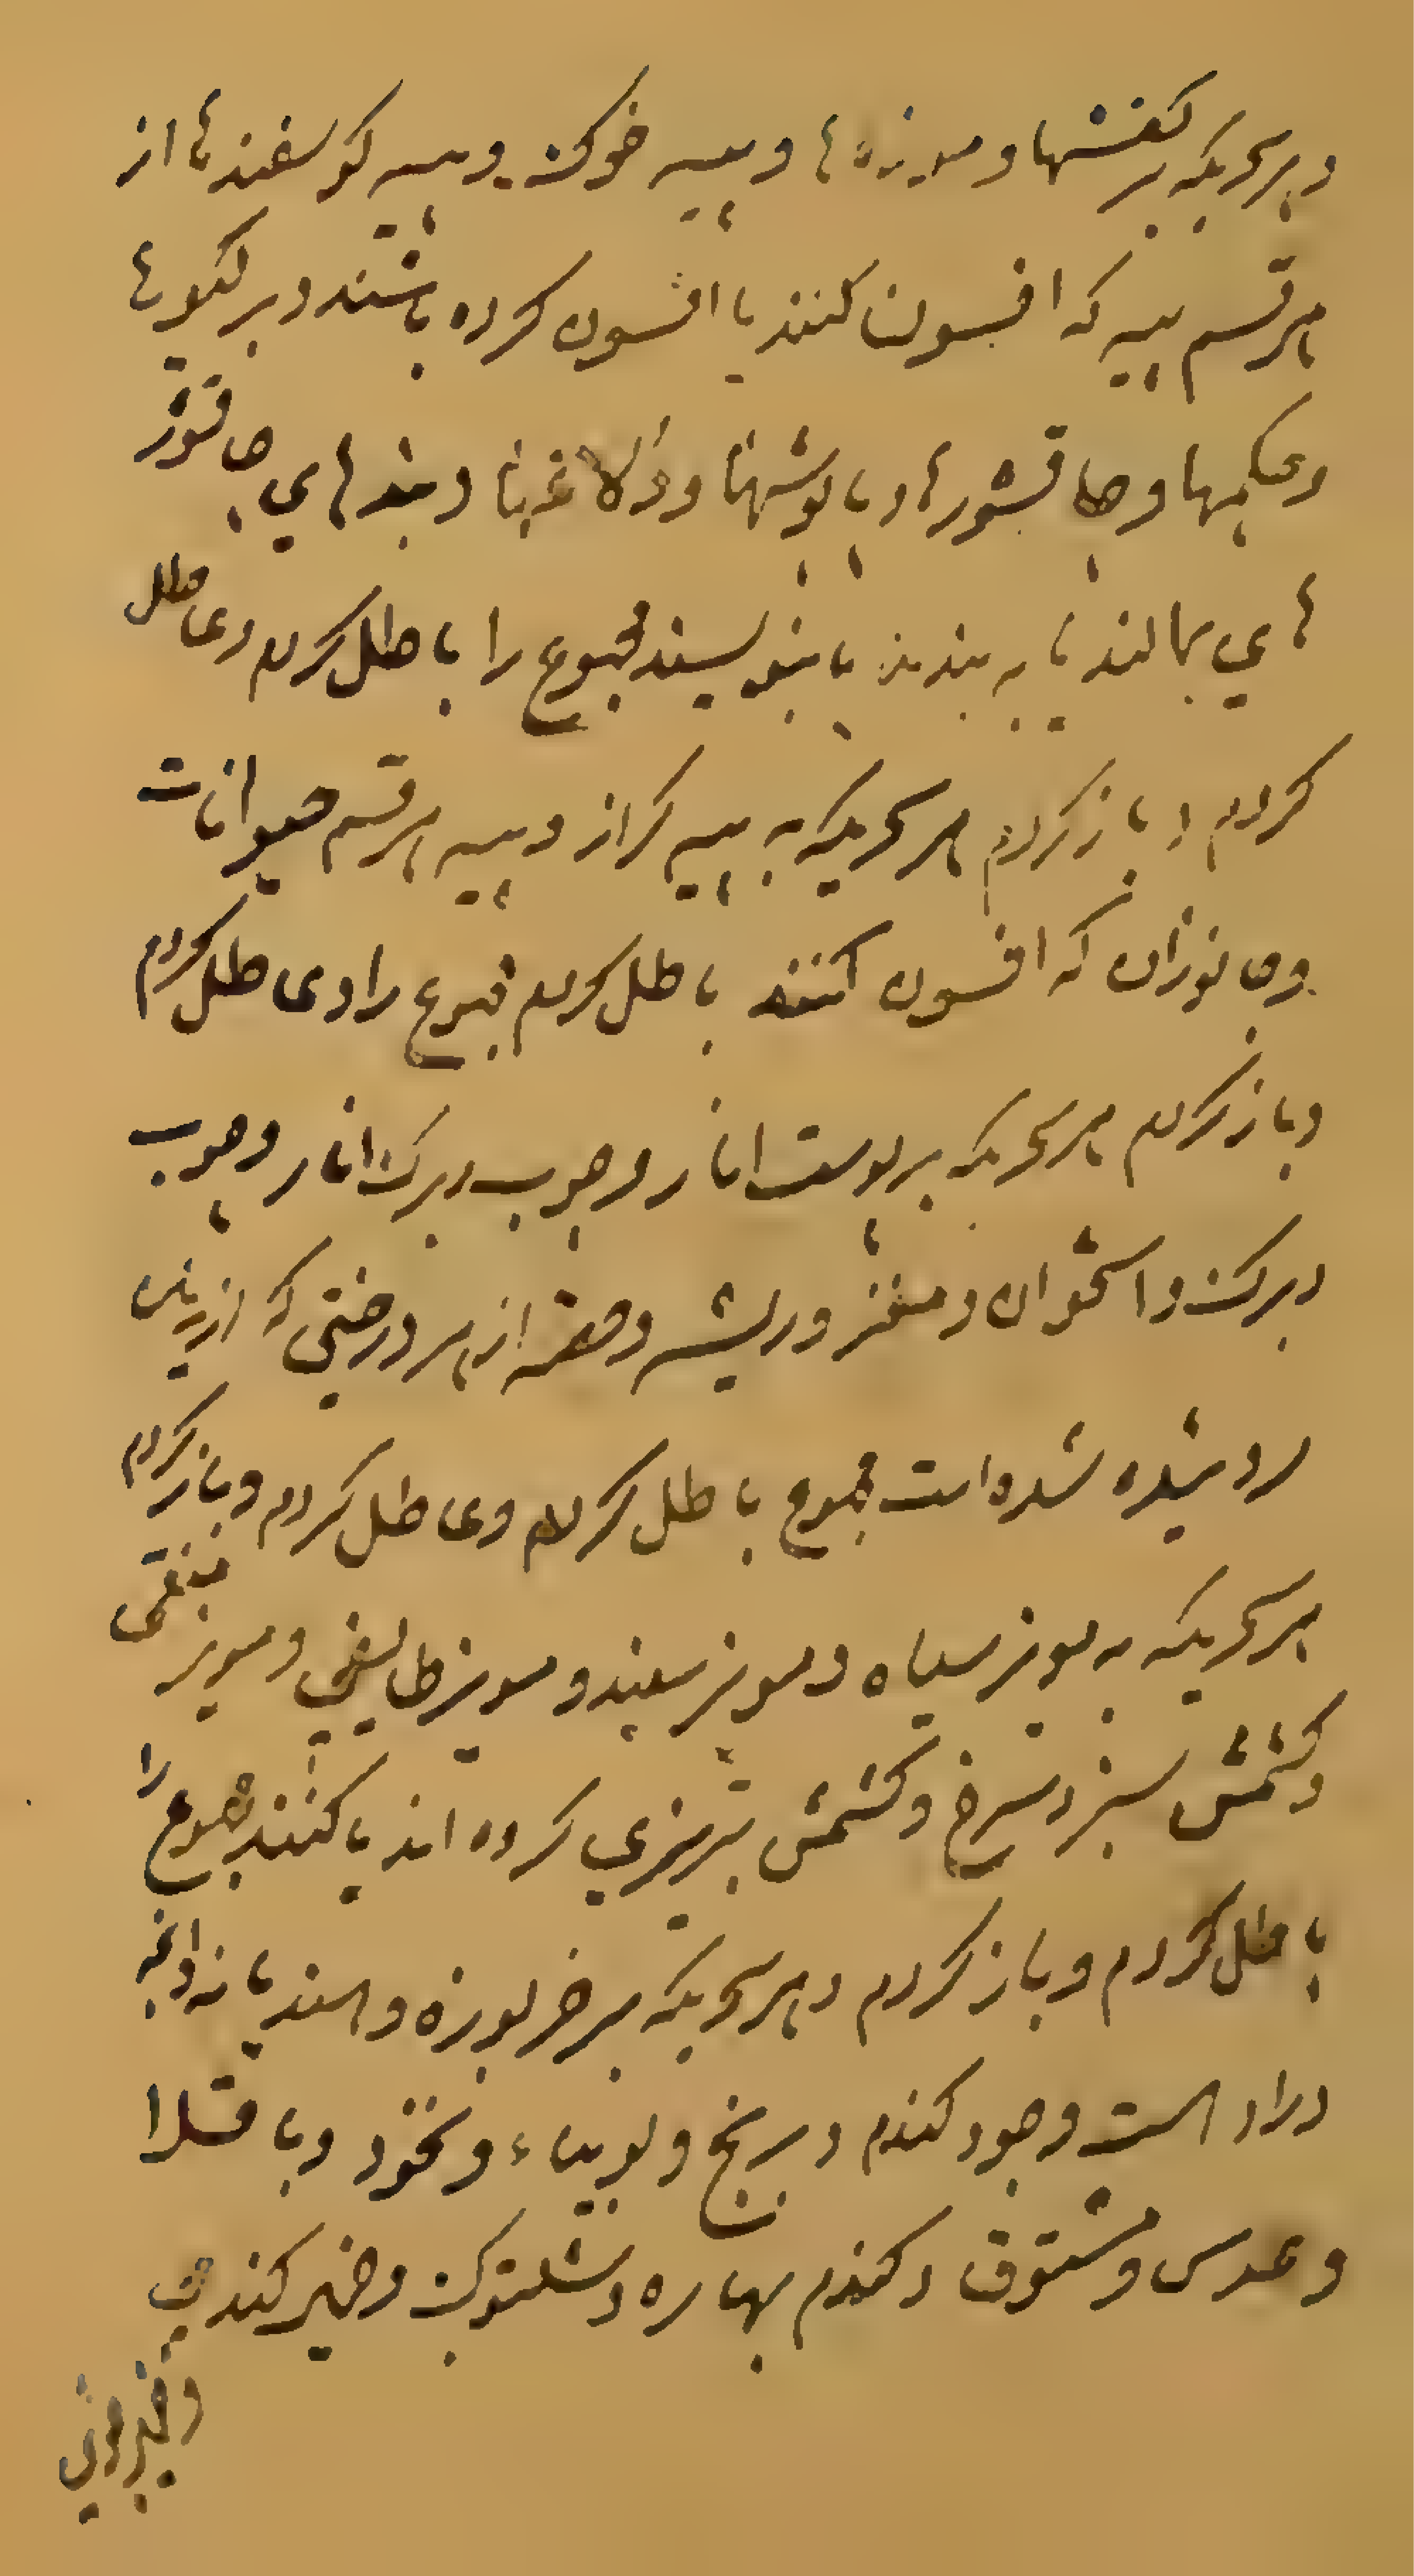 و هر سحریکه بر کفشها و موزه ها و پیه خوک و پیه کوسفند ها از
هر قسم پیه که افسون کنند یا افسون کرده باشند و بر لکو ها
و عکمها و چاقشورها و پاپوشها و بندهای چاقشور
های بمالند یا به بندند یا بنویسند مجموع را باطل کردم و عاطل
کردم و باز کردم هر سحریکه به پیه کراز و پیه هر قسم حیوانات
و جانوران که افسون کنند باطل کردم مجموع را و عاطل کردم
و باز کردم هر سحریکه بر پوست انار و چوب و برک انار و چوب
و برک و استخوان و مغز و ریشه و از هر درختی که از زمین
روئیده شده است مجموع باطل کردم و عاطل کردم و باز کردم
هر سحریکه به مویز سیاه و مویز سفید و مویز طایفی و مویز منقی
و کشمش سبز و سرخ و کشمش تبریزی کرده اند یا کنند مجموع را
باطل کردم و باز کردم و هر سحریکه بر خربوزه و هندیانه و آنچه
در او است و جو و کندم و برنج و لوبیاء و نخود و باقلا
و عدس و مشتوق و کندم بهاره و شلتوک و خمیر کندم
و خمیر